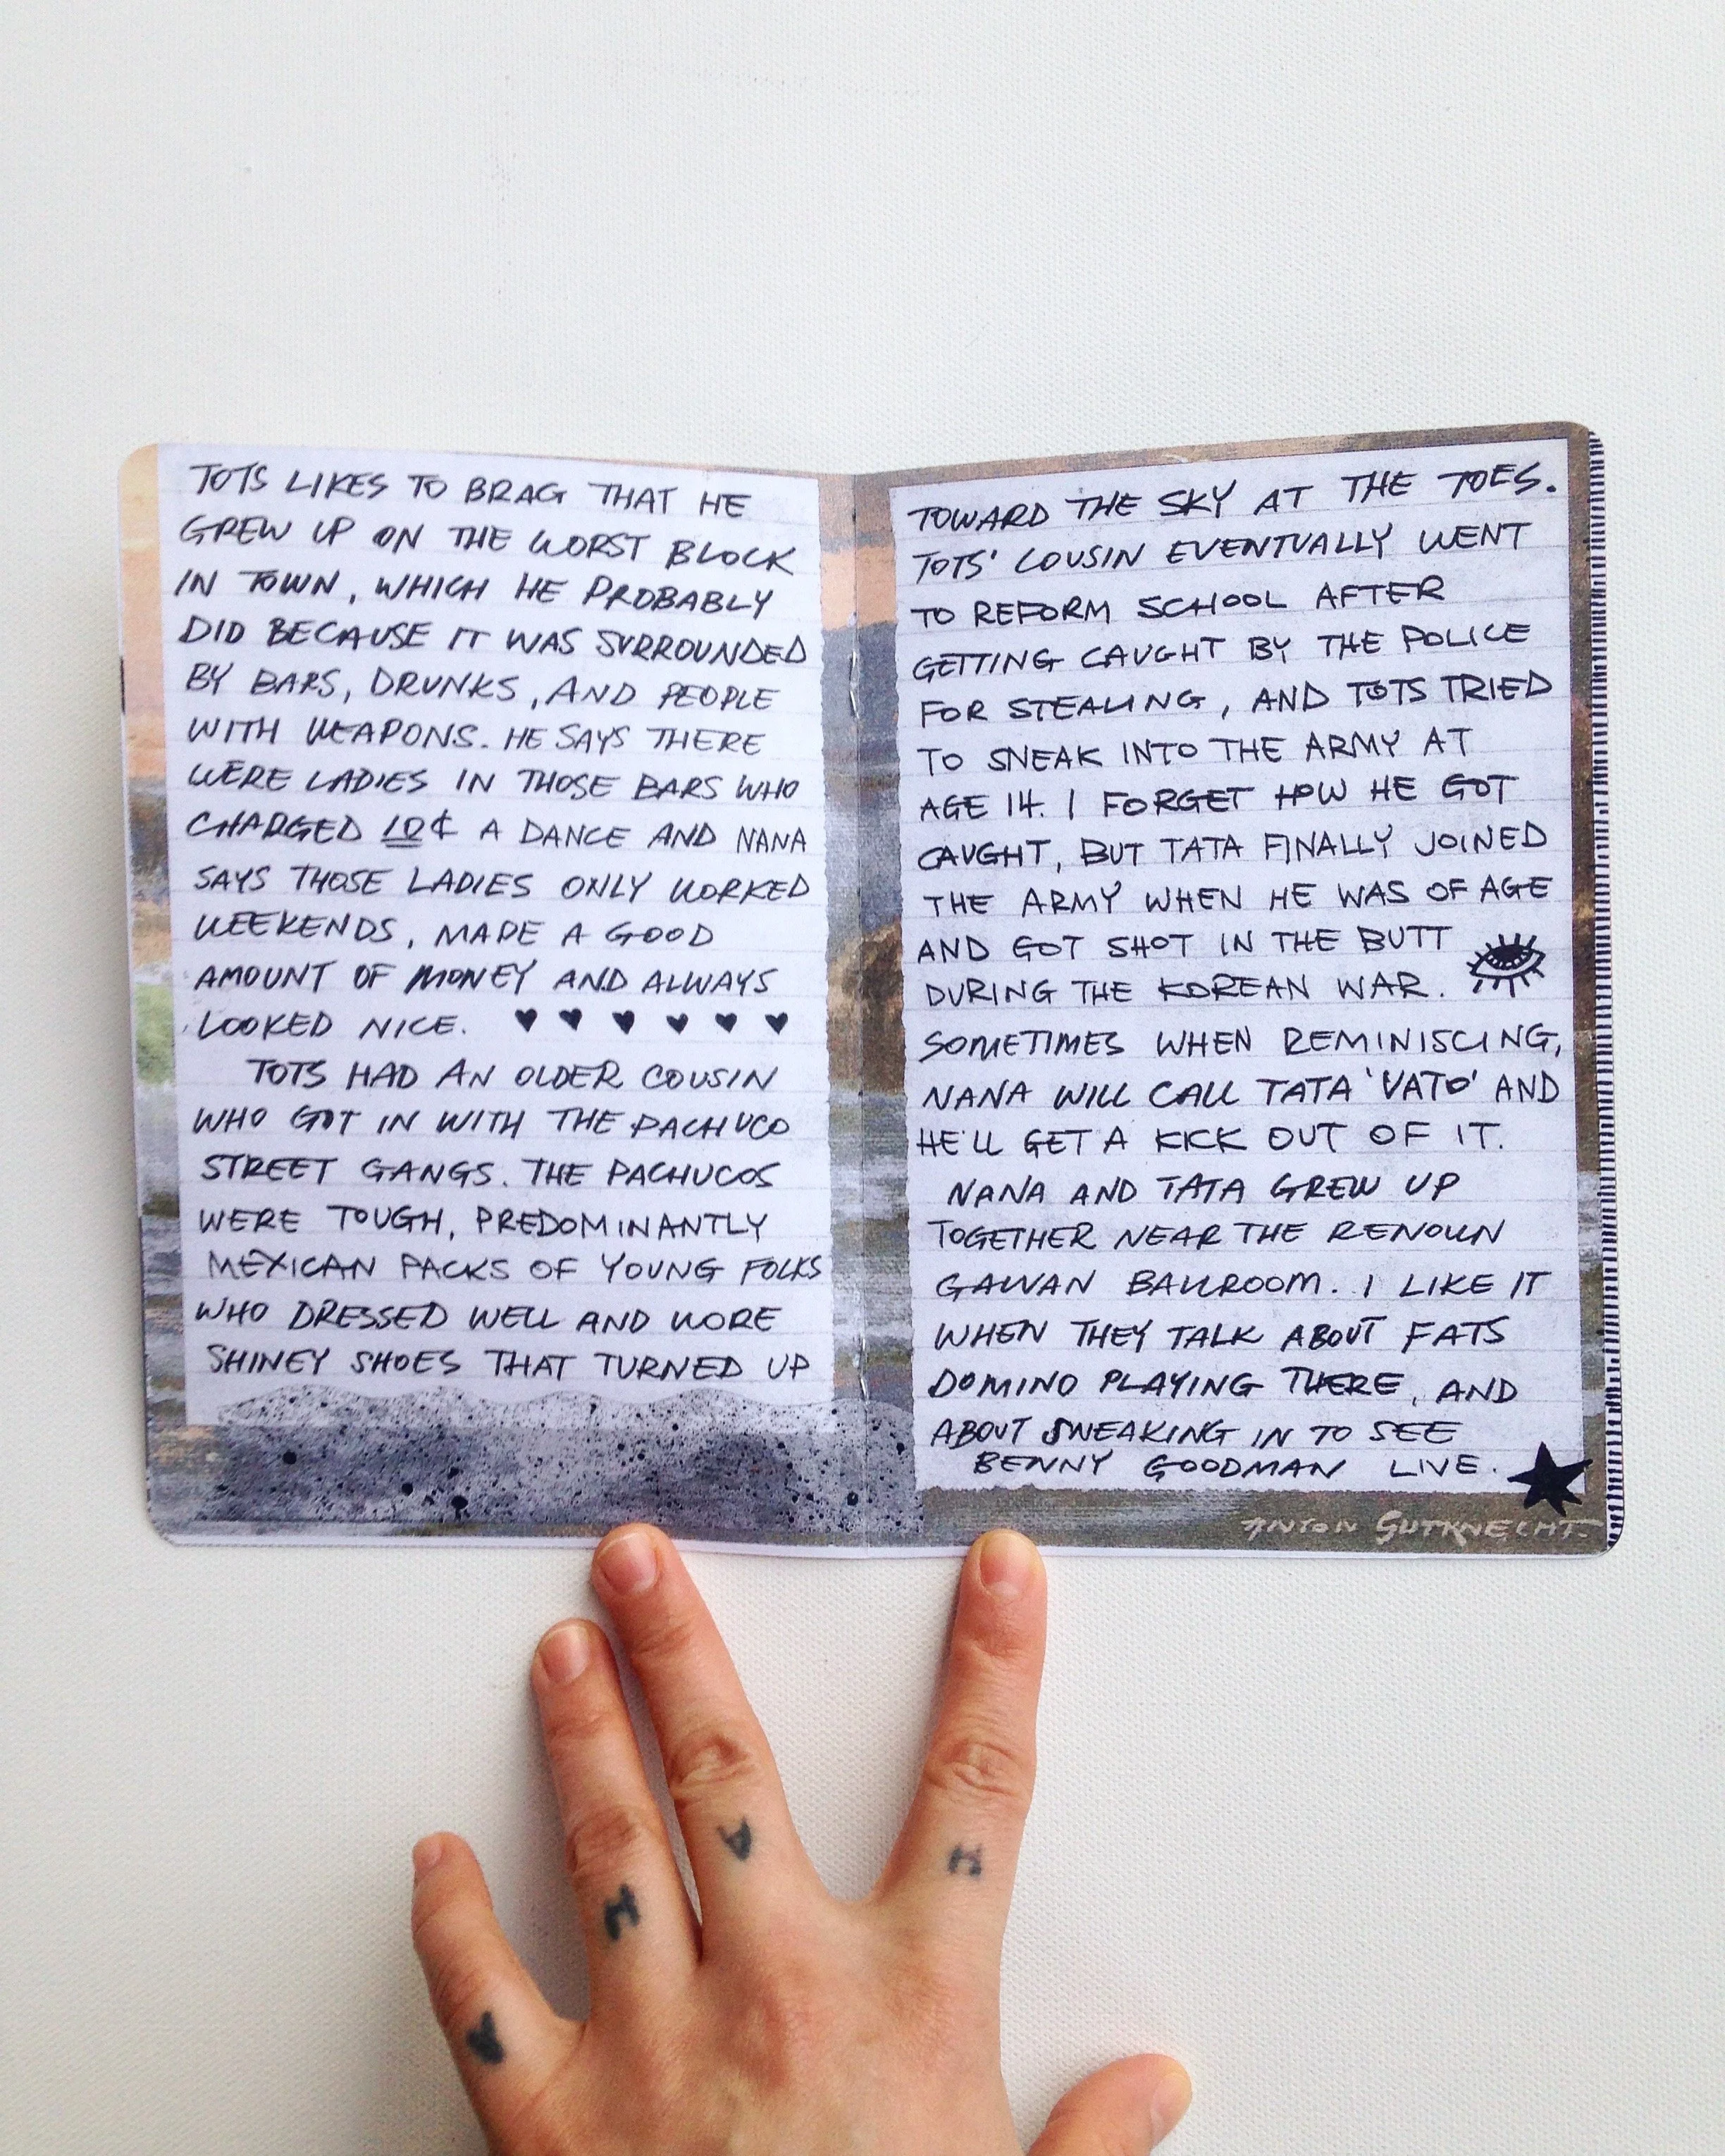 TOTS LIKES TO BRAG THAT HE
GREW UP ON THE WORST BLOCK
IN TOWN, WHICH HE PROBABLY
DID BECAUSE IT WAS SURROUNDED
BY BARS, DRUNKS, AND PEOPLE
WITH WEAPONS. HE SAYS THERE
WERE LADIES IN THOSE BARS WHO
CHARGED 10¢ A DANCE AND NANA
SAYS THOSE LADIES ONLY WORKED
WEEKENDS, MADE A GOOD
AMOUNT OF MONEY AND ALWAYS
LOOKED NICE. ♥ ♥ ♥ ♥ ♥ ♥
TOTS HAD AN OLDER COUSIN
WHO GOT IN WITH THE PACHUCO
STREET GANGS. THE PACHUCOS
WERE TOUGH, PREDOMINANTLY
MEXICAN PACKS OF YOUNG FOLKS
WHO DRESSED WELL AND WORE
SHINEY SHOES THAT TURNED UP
TOWARD THE SKY AT THE TOES.
TOTS' COUSIN EVENTUALLY WENT
TO REFORM SCHOOL AFTER
GETTING CAUGHT BY THE POLICE
FOR STEALING, AND TOTS TRIED
TO SNEAK INTO THE ARMY AT
AGE 14. I FORGET HOW HE GOT
CAUGHT, BUT TATA FINALLY JOINED
THE ARMY WHEN HE WAS OF AGE
AND GOT SHOT IN THE BUTT
DURING THE KOREAN WAR.
SOMETIMES WHEN REMINISCING,
NANA WILL CALL TATA 'VATO' AND
HE'LL GET A KICK OUT OF IT.
NANA AND TATA GREW UP
TOGETHER NEAR THE RENOWN
GALVAN BALLROOM. I LIKE IT
WHEN THEY TALK ABOUT FATS
DOMINO PLAYING THERE, AND
ABOUT SNEAKING IN TO SEE
BENNY GOODMAN LIVE.
ANTON GUTKNECHT.
A H A H